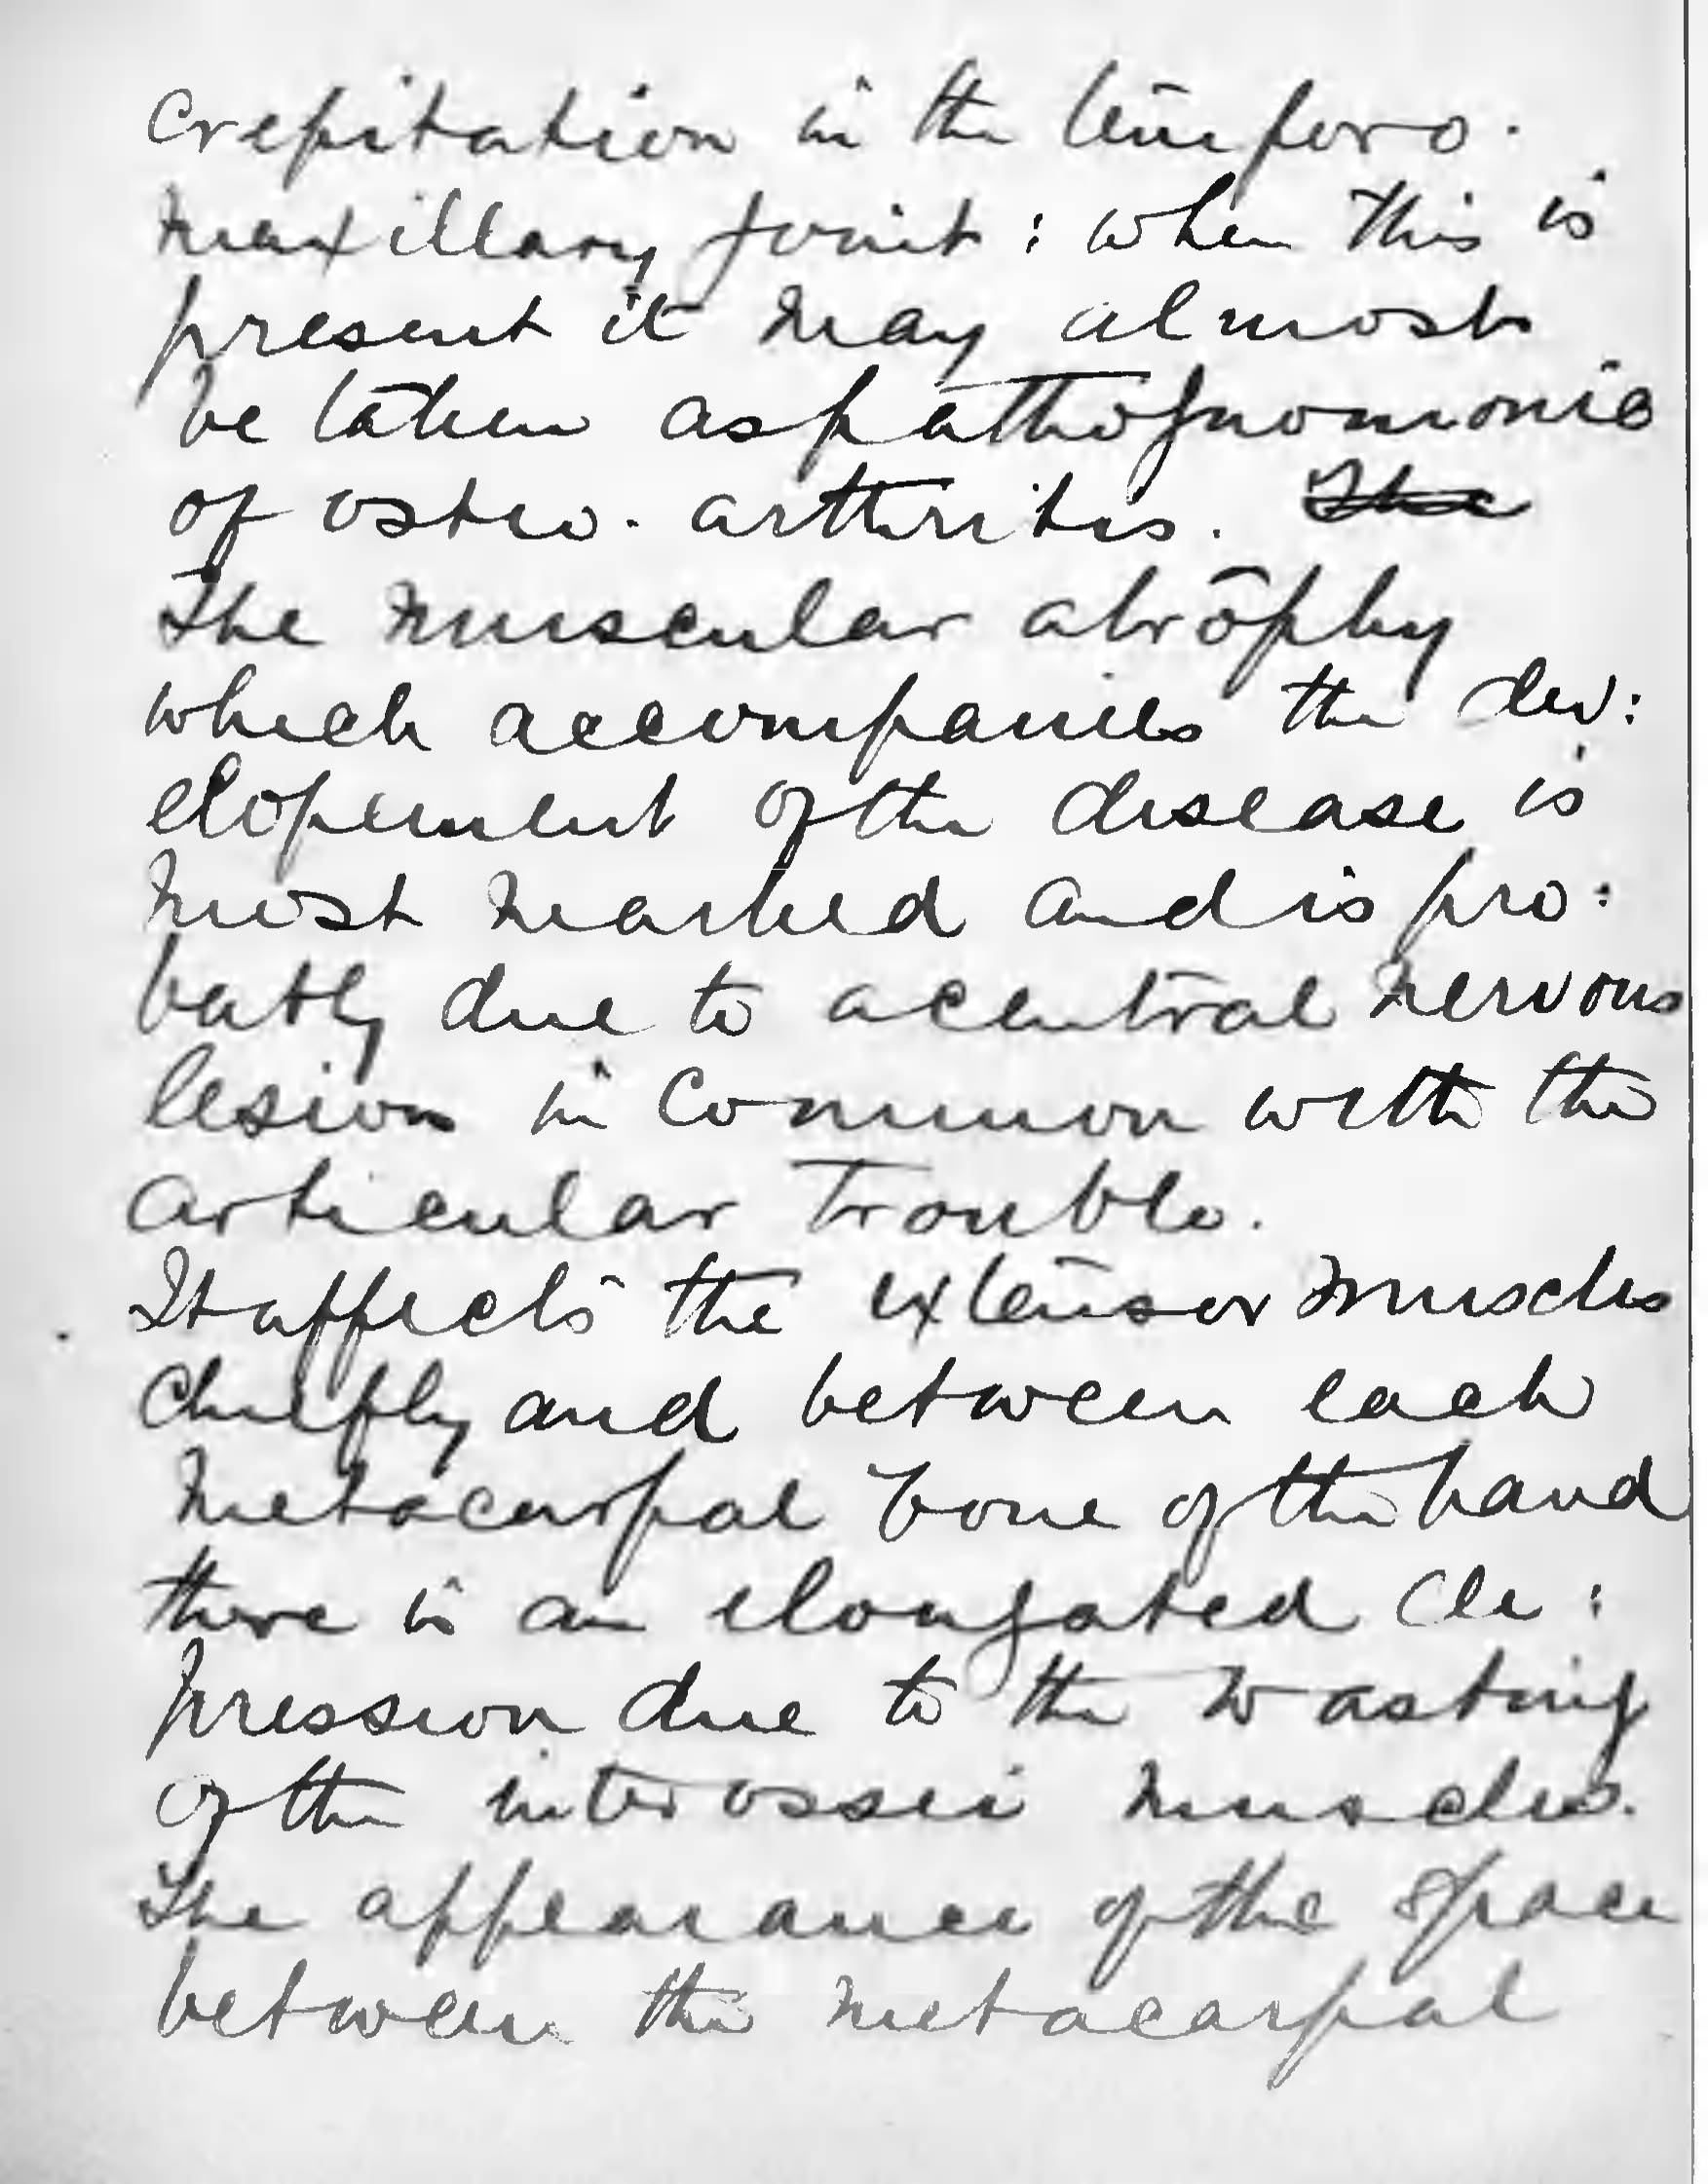 Crepitation in the temporo-
maxillary joint : when this is
present it may almost
be taken as pathognomonic
of osteo-arthritis. The
The muscular atrophy
which accompanies the dev:
elopement of the disease is
most marked and is pro:
bably due to a central nervous
lesion in common with the
articular trouble.
It affects the extensor muscles
chiefly and between each
metacarpal bone of the hand
there is an elongated de:
pression due to the wasting
of the interossei muscles.
The appearance of the space
between the metacarpal